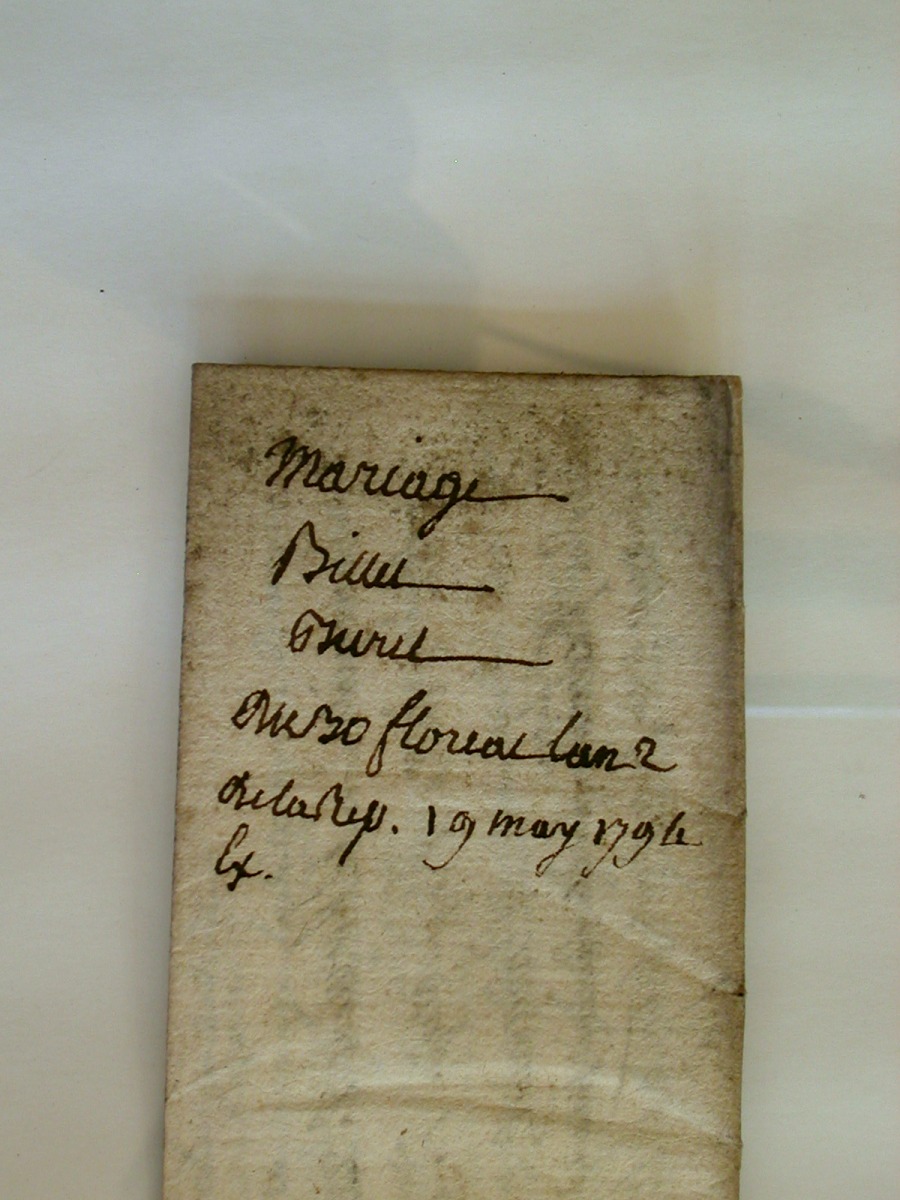 Mariage
Billet
Du 30 floreal lan 2
De la Rep. 19 may 1794
Ex.